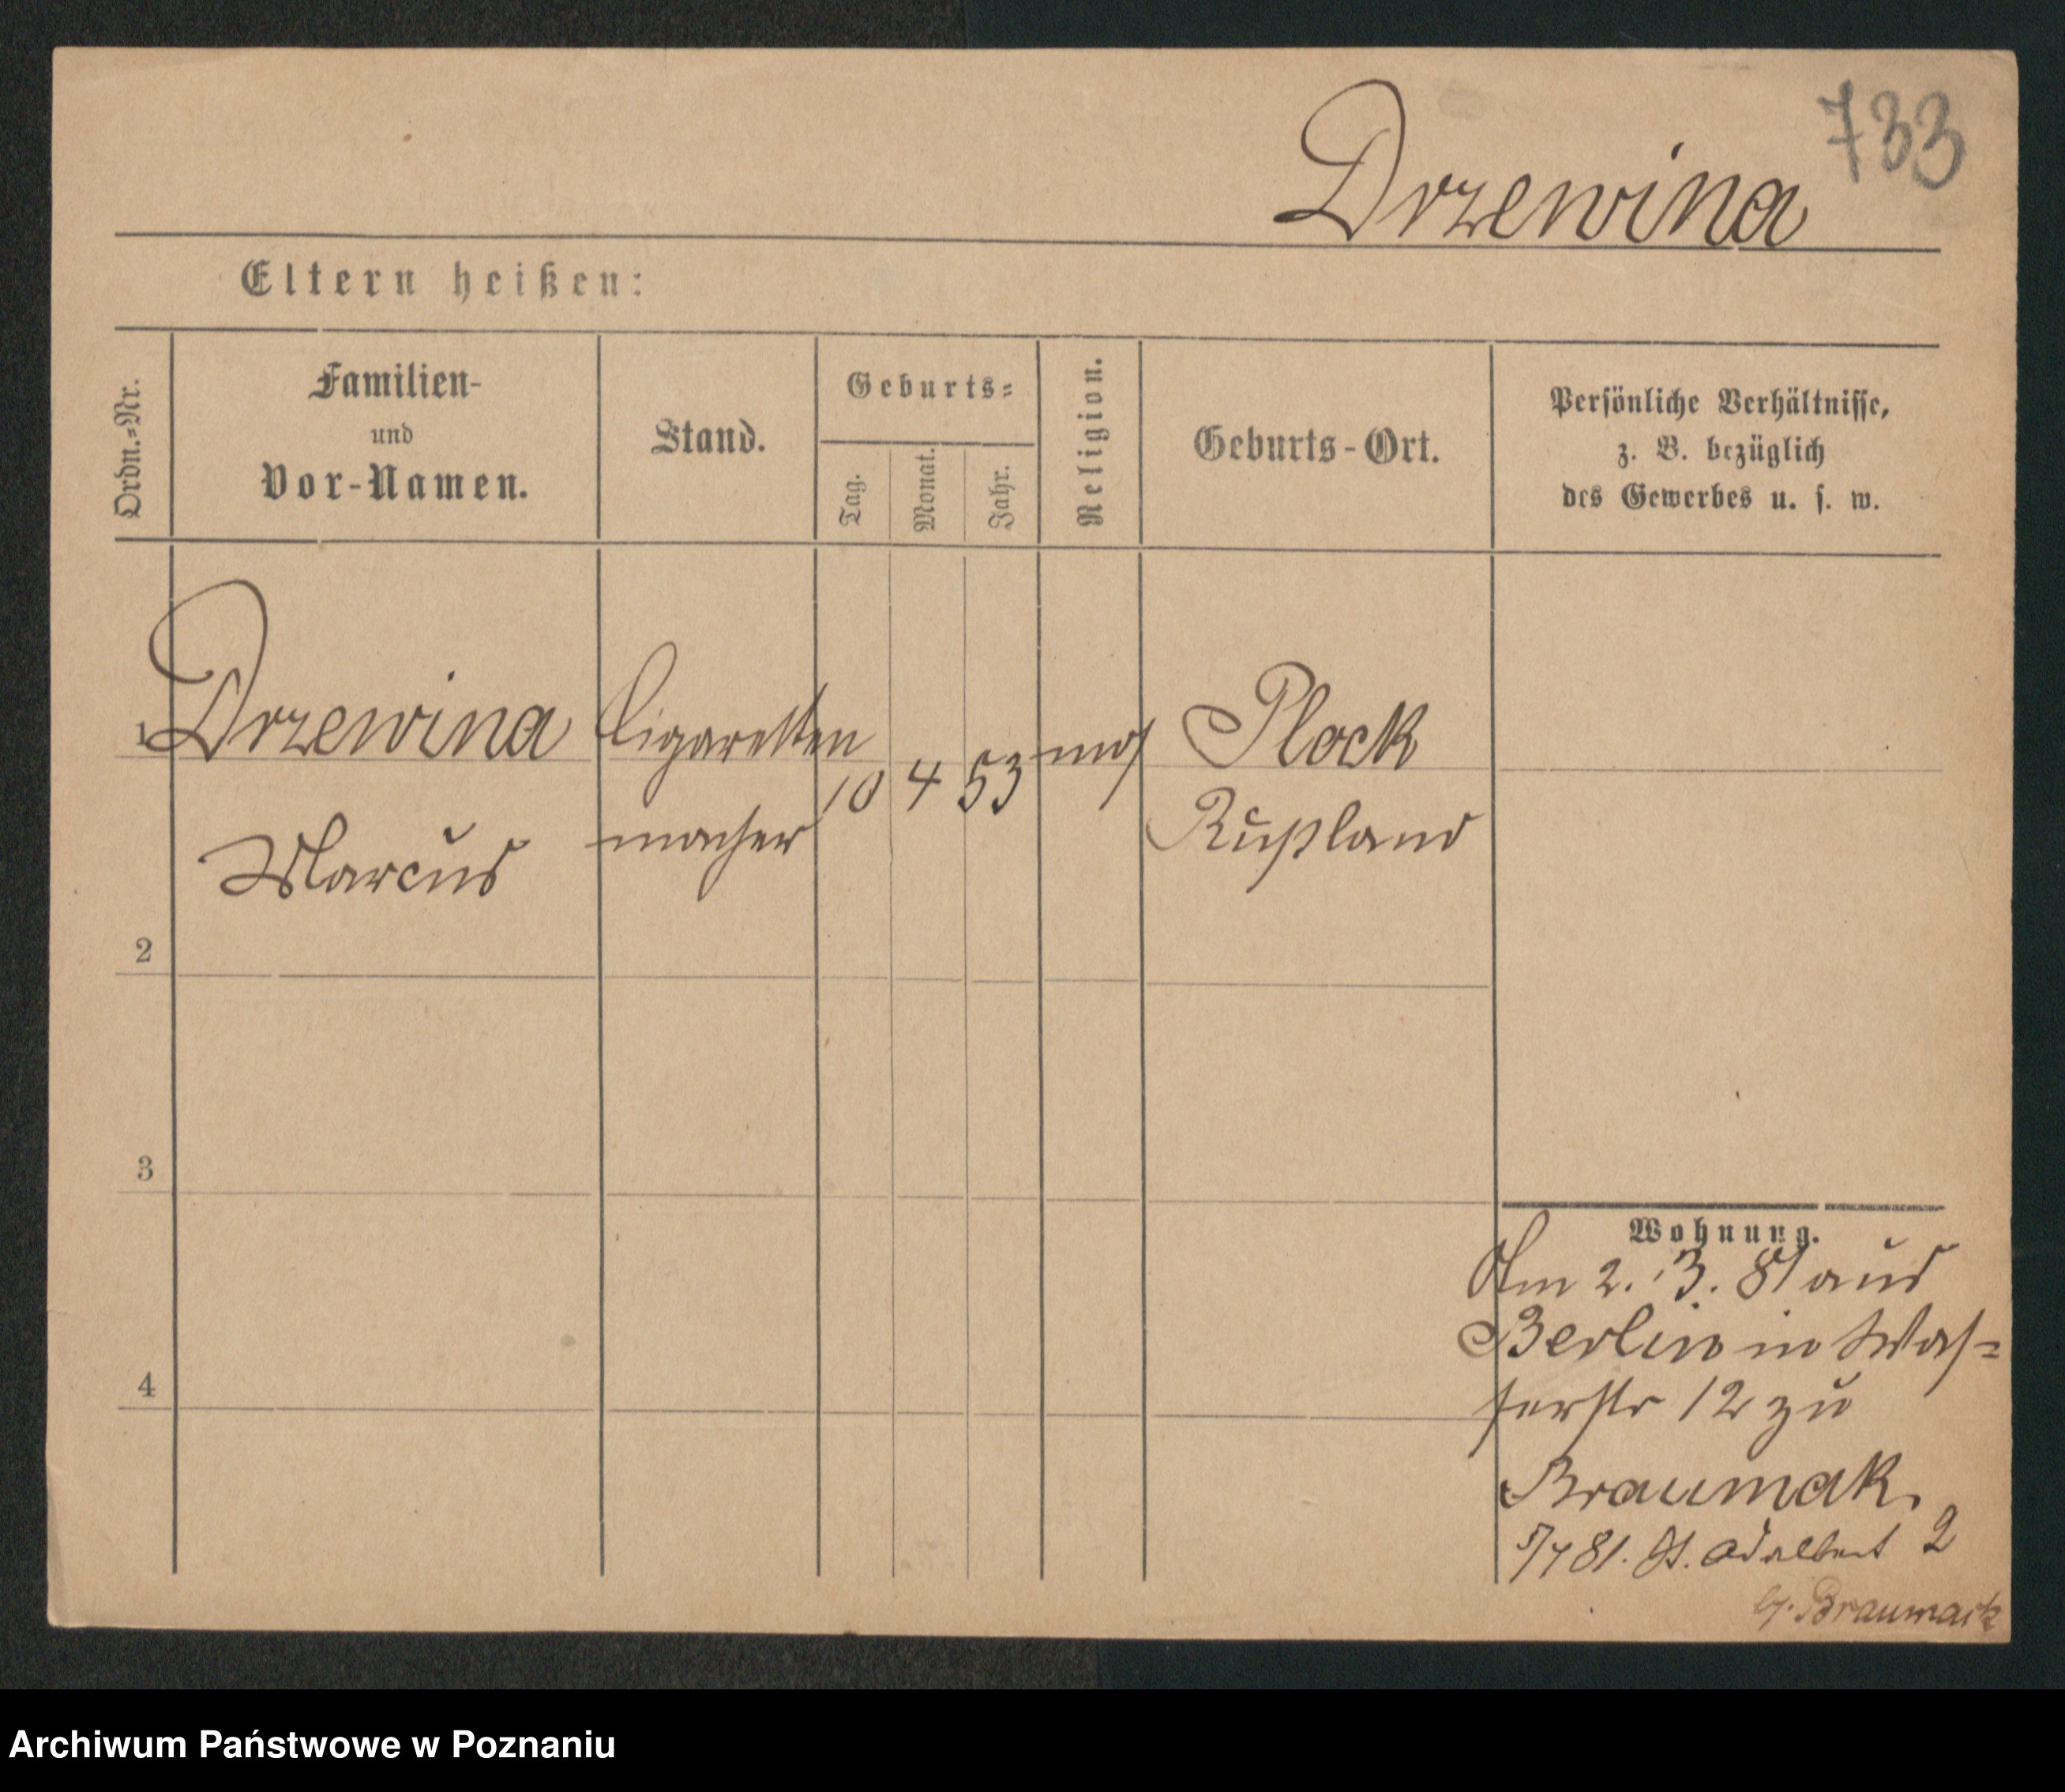 733
Drzewina
Eltern heißen:
Ordn.-Nr.
Familien-
und
Vor-Namen.
Stand.
Geburts-
Tag.
Monat.
Jahr.
Religion.
Geburts-Ort.
Persönliche Verhältnisse,
z. B. bezüglich
des Gewerbes u. s. w.
1 Drzewina Cigaretten 10 4 53 mos Plock
Marcus macher Rußland
2
3
4
Wohnung.
Am 2. 3. 81 aus
Berlin in Was-
serstr 12 zu
Braumak.
5/4 81. St. Adalbert 2
b/. Braumark
Archiwum Państwowe w Poznaniu